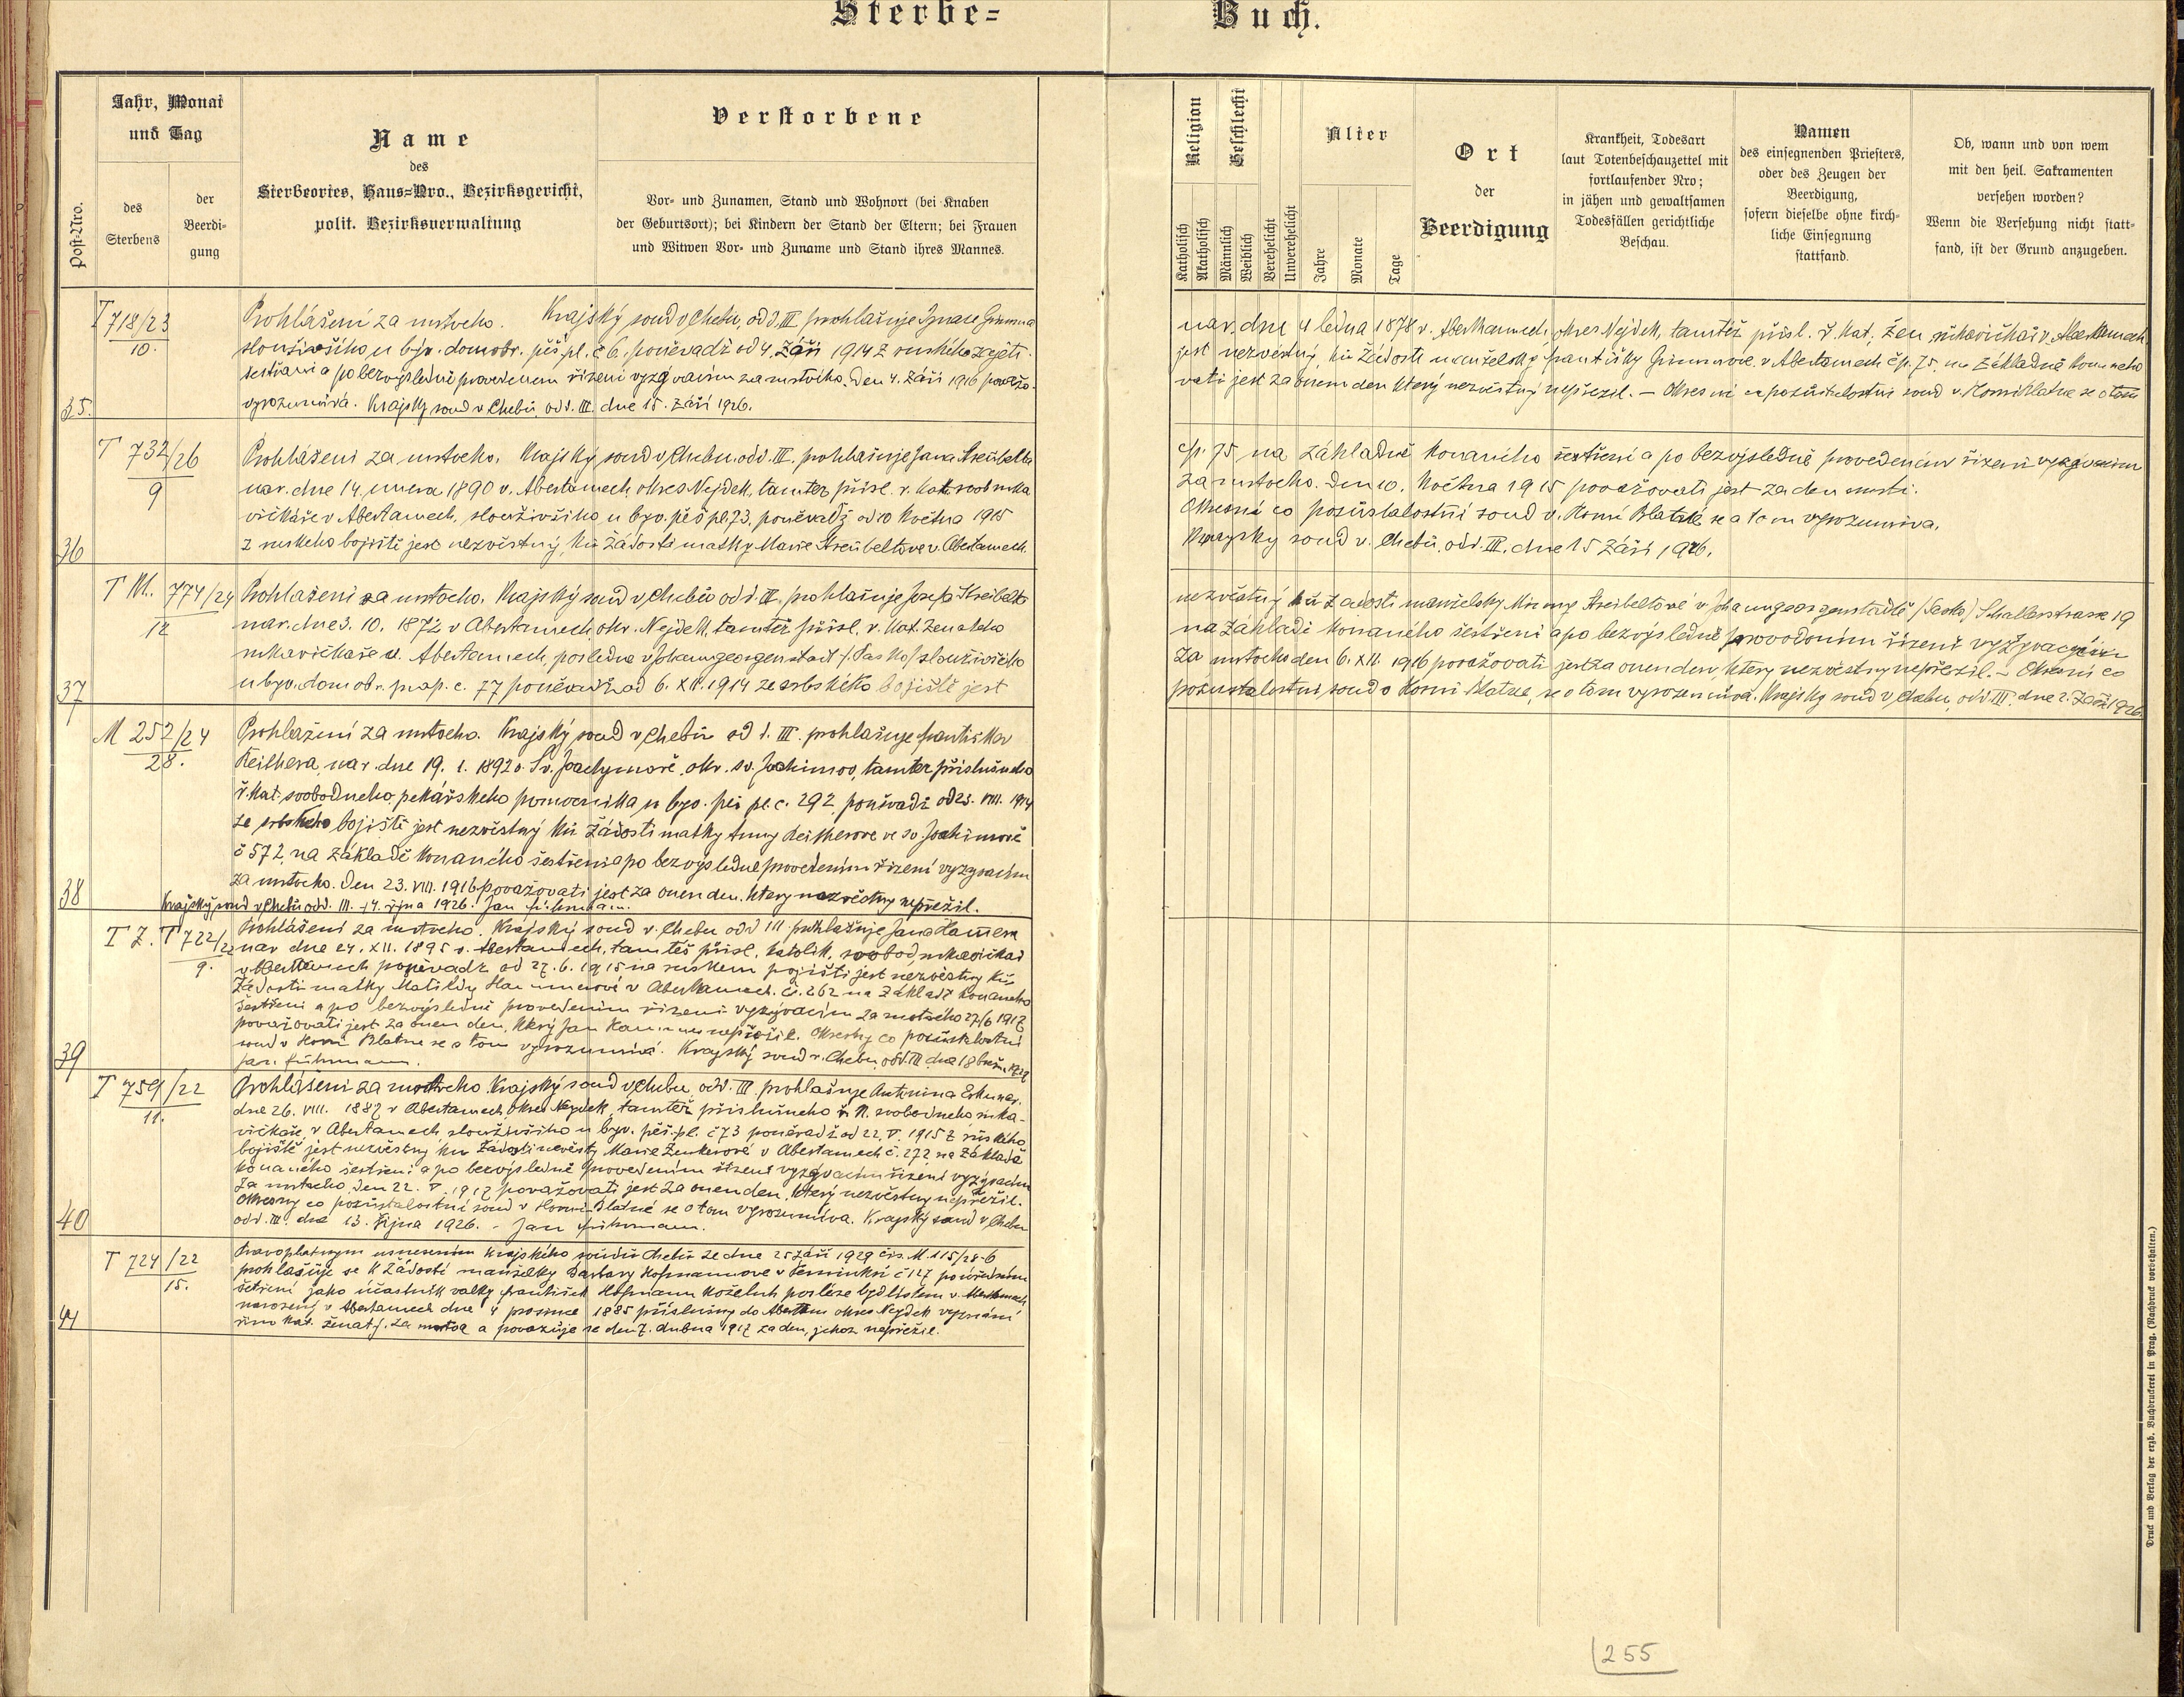 Sterbe= Buch.
Post-Nro.
Jahr, Monat
und Tag
des
Sterbens
der
Beerdi-
gung
Name
des
Sterbeortes, Haus=Nro., Bezirksgericht,
polit. Bezirksverwaltung
Verstorbene
Vor- und Zunamen, Stand und Wohnort (bei Knaben
der Geburtsort); bei Kindern der Stand der Eltern; bei Frauen
und Witwen Vor- und Zuname und Stand ihres Mannes.
Religion
Katholisch
Akatholisch
Geschlecht
Männlich
Weiblich
Verehelicht
Unverehelicht
Alter
Jahre
Monate
Tage
Ort
der
Beerdigung
Krankheit, Todesart
laut Totenbeschauzettel mit
fortlaufender Nro;
in jähen und gewaltsamen
Todesfällen gerichtliche
Beschau.
Namen
des einsegnenden Priesters,
oder des Zeugen der
Beerdigung,
sofern dieselbe ohne kirch-
liche Einsegnung
stattfand.
Ob, wann und von wem
mit den heil. Sakramenten
versehen worden?
Wenn die Versehung nicht statt-
fand, ist der Grund anzugeben.
35.
T 718/23
10.
Prohlášení za mrtvého. Krajský soud v Chebu, odd. III prohlašuje Ignace Grimma
sloužívšího u býv. domobr. pěš. pl. č 6. poněvadž od 4. Září 1914 z ruského zajetí
šestřením a po bezvýsledně provedenem řízení vyzývacím za mrtvého. Den 4. Září 1916 považo-
vyrozumívá. Krajský soud v Chebu, odd. III. dne 15. Září 1926.
nar. dne 4 ledna 1878 v Abertamech, okres Nejdek, tamtéž přísl. ř. kat, žen. rukavičkář v Abertamech
jest nezvěstný, ku žádosti manželky Františky Grimmové v Abertamech čp. 75. na základně konaneho
vati jest za onem den který nezvěstný nepřežil. — Okresní co pozůstalostní soud v Horní Blatne se o tom
36
T 732/26
9
Prohlášení za mrtvého. Krajský soud v Chebu. odd. III. prohlašuje Jana Streibelta
nar. dne 14. února 1890 v. Abertamech okres Nejdek, tamtéž přísl. ř. kat. svob. ruka
vičkáře v Abertamech, sloužívšího u býv. pěš pl. 73, poněvadž od 10 Května 1915
z ruskeho bojiště jest nezvěstný, ku žádosti matky Marie Streibeltove v. Abertamech
čp. 75 na základně konaného šestření a po bezvýsledně provedeném řízení vyzývacím
za mrtvého. Den 10. Května 1915 považovati jest za den smrti.
Okresní co pozůstalostní soud v. Horní Blatné se a tom vyrozumíva.
Krajský soud v. Chebu, odd. III. dne 15 Září 1926.
37
T M. 774/24
12
Prohlašení za mrtvého. Krajský soud v Chebu odd. III. prohlašuje Josefa Streibelta
nar. dne 3. 10. 1872 v Abertamech, okr. Nejdek, tamtéž přísl. ř. kat. ženateho
rukavičkaře v. Abertamech, posledne v Johanngeorgenstadt /Sasko/ sloužívšího
u býv. domobr. prap. č. 77 poněvadž od 6. XII. 1914 ze srbského bojiště jest
nezvěstný ku žadosti manželky Minny Streibeltové v Johanngeorgenstadtě /Sasko/ Schallerstrasse 19
na základě konaného šestření a po bezvýsledně provodením řízení vyzývacím
za mrtvého den 6. XII. 1916 považovati jest za onen den, ktery nezvěstny nepřežil. — Okresní co
pozustalostní, soud v Horní Blatne, se o tom vyrozumívá. Krajský soud v Chebu, odd. III. dne 2. Září 1926.
38
M 252/24
28.
Prohlášení za mrtvého. Krajský soud v Chebu od d. III. prohlašuje Františka
Reithera, nar. dne 19. 1. 1892 v. Sv. Joachymově, okr. sv. Joachimov, tamtéž příslušného
ř. kat. svobodneho, pekářskeho pomocníka u býv. pěš pl. č. 292 poněvadž od 23. VIII. 1914
ze srbského bojiště jest nezvěstný ku žádosti matky Anny Reitherove ve sv. Joachimově
č 572, na základě konaného šestření a po bezvýsledne provedením řízení vyzývacím
za mrtveho. Den 23. VIII. 1916 považovati jest za onen den. ktery nezvěstny nepřežil.
Krajský soud v Chebu odd. III. 14. října 1926. Jan Führmann.
39
T Z. T 722/22
9.
Prohlášení za mrtveho. Krajský soud v. Chebu odd III prohlašuje Jana Hammera
nar dne 24. XII. 1895 v. Abertamech, tamtéš přísl. katolík, svobod, rukavičkář
v Abertamech poněvadž od 27. 6. 1915 na ruskem bojišti jest nezvěstny ku
žádosti matky Matildy Hammerové v Abertamech. čí. 262 na základě konaneho
šestření a po bezvýslední provedením řízení vyzývacím za mrtvého 27/6 1917
považovati jest za onen den, který Jan Hammer nepřežil. Okresny co pozůstalostní
soud v Horní Blatne se o tom vyrozumívá. Krajský soud v. Chebu odd. III dne 18
Jan Führmann.
40
T 759/22
11.
Prohlášení za mrtveho. Krajský soud v Chebu odd. III prohlašuje Antonína
dne 26. VIII. 1887 v Abertamech, okres Nejdek, tamtéž příslušneho ř. K. svobodneho ruka-
vičkaře, v Abertamech sloužívšího u býv. pěš. pl. č 73 poněvadž od 22. V. 1915 z ruského
bojiště jest nezvěstný ku žádosti nevěsty Marie Zenkerové v Abertamech č. 272 na základě
konaného šestření a po bezvýsledně provedením řízení vyzývacím řízení vyzývacím
za mrtveho. Den 22. V. 1917 považovati jest za onen den, který nezvěstny nepřežil.
Okresny co pozůstalostní soud v Horní Blatné se o tom vyrozumíva. Krajský soud v Chebu
odd. III. dne 13. října 1926. - Jan Führmann.
41
T 724/22
15.
Pravoplatnym usnesením krajského soudu Chebu ze dne 25 září 1929 čís. M. 115/28-6
prohlašuje se k žádosti manželky Barbary Hofmannove v č 127 po úředním
šetření jako účastník valky František Hofmann koželuh posléze bydlištem v. Abertamech
narozený v Abertamech dne 4 prosince 1885 příslušny do Abertam okres Nejdek vyznání
řím. kat. ženatý. za mrtva a považuje se den 7. dubna 1917 za den, jehož nepřežil.
Druck und Verlag der erzb. Buchdruckerei in Prag. (Nachdruck vorbehalten.)
255